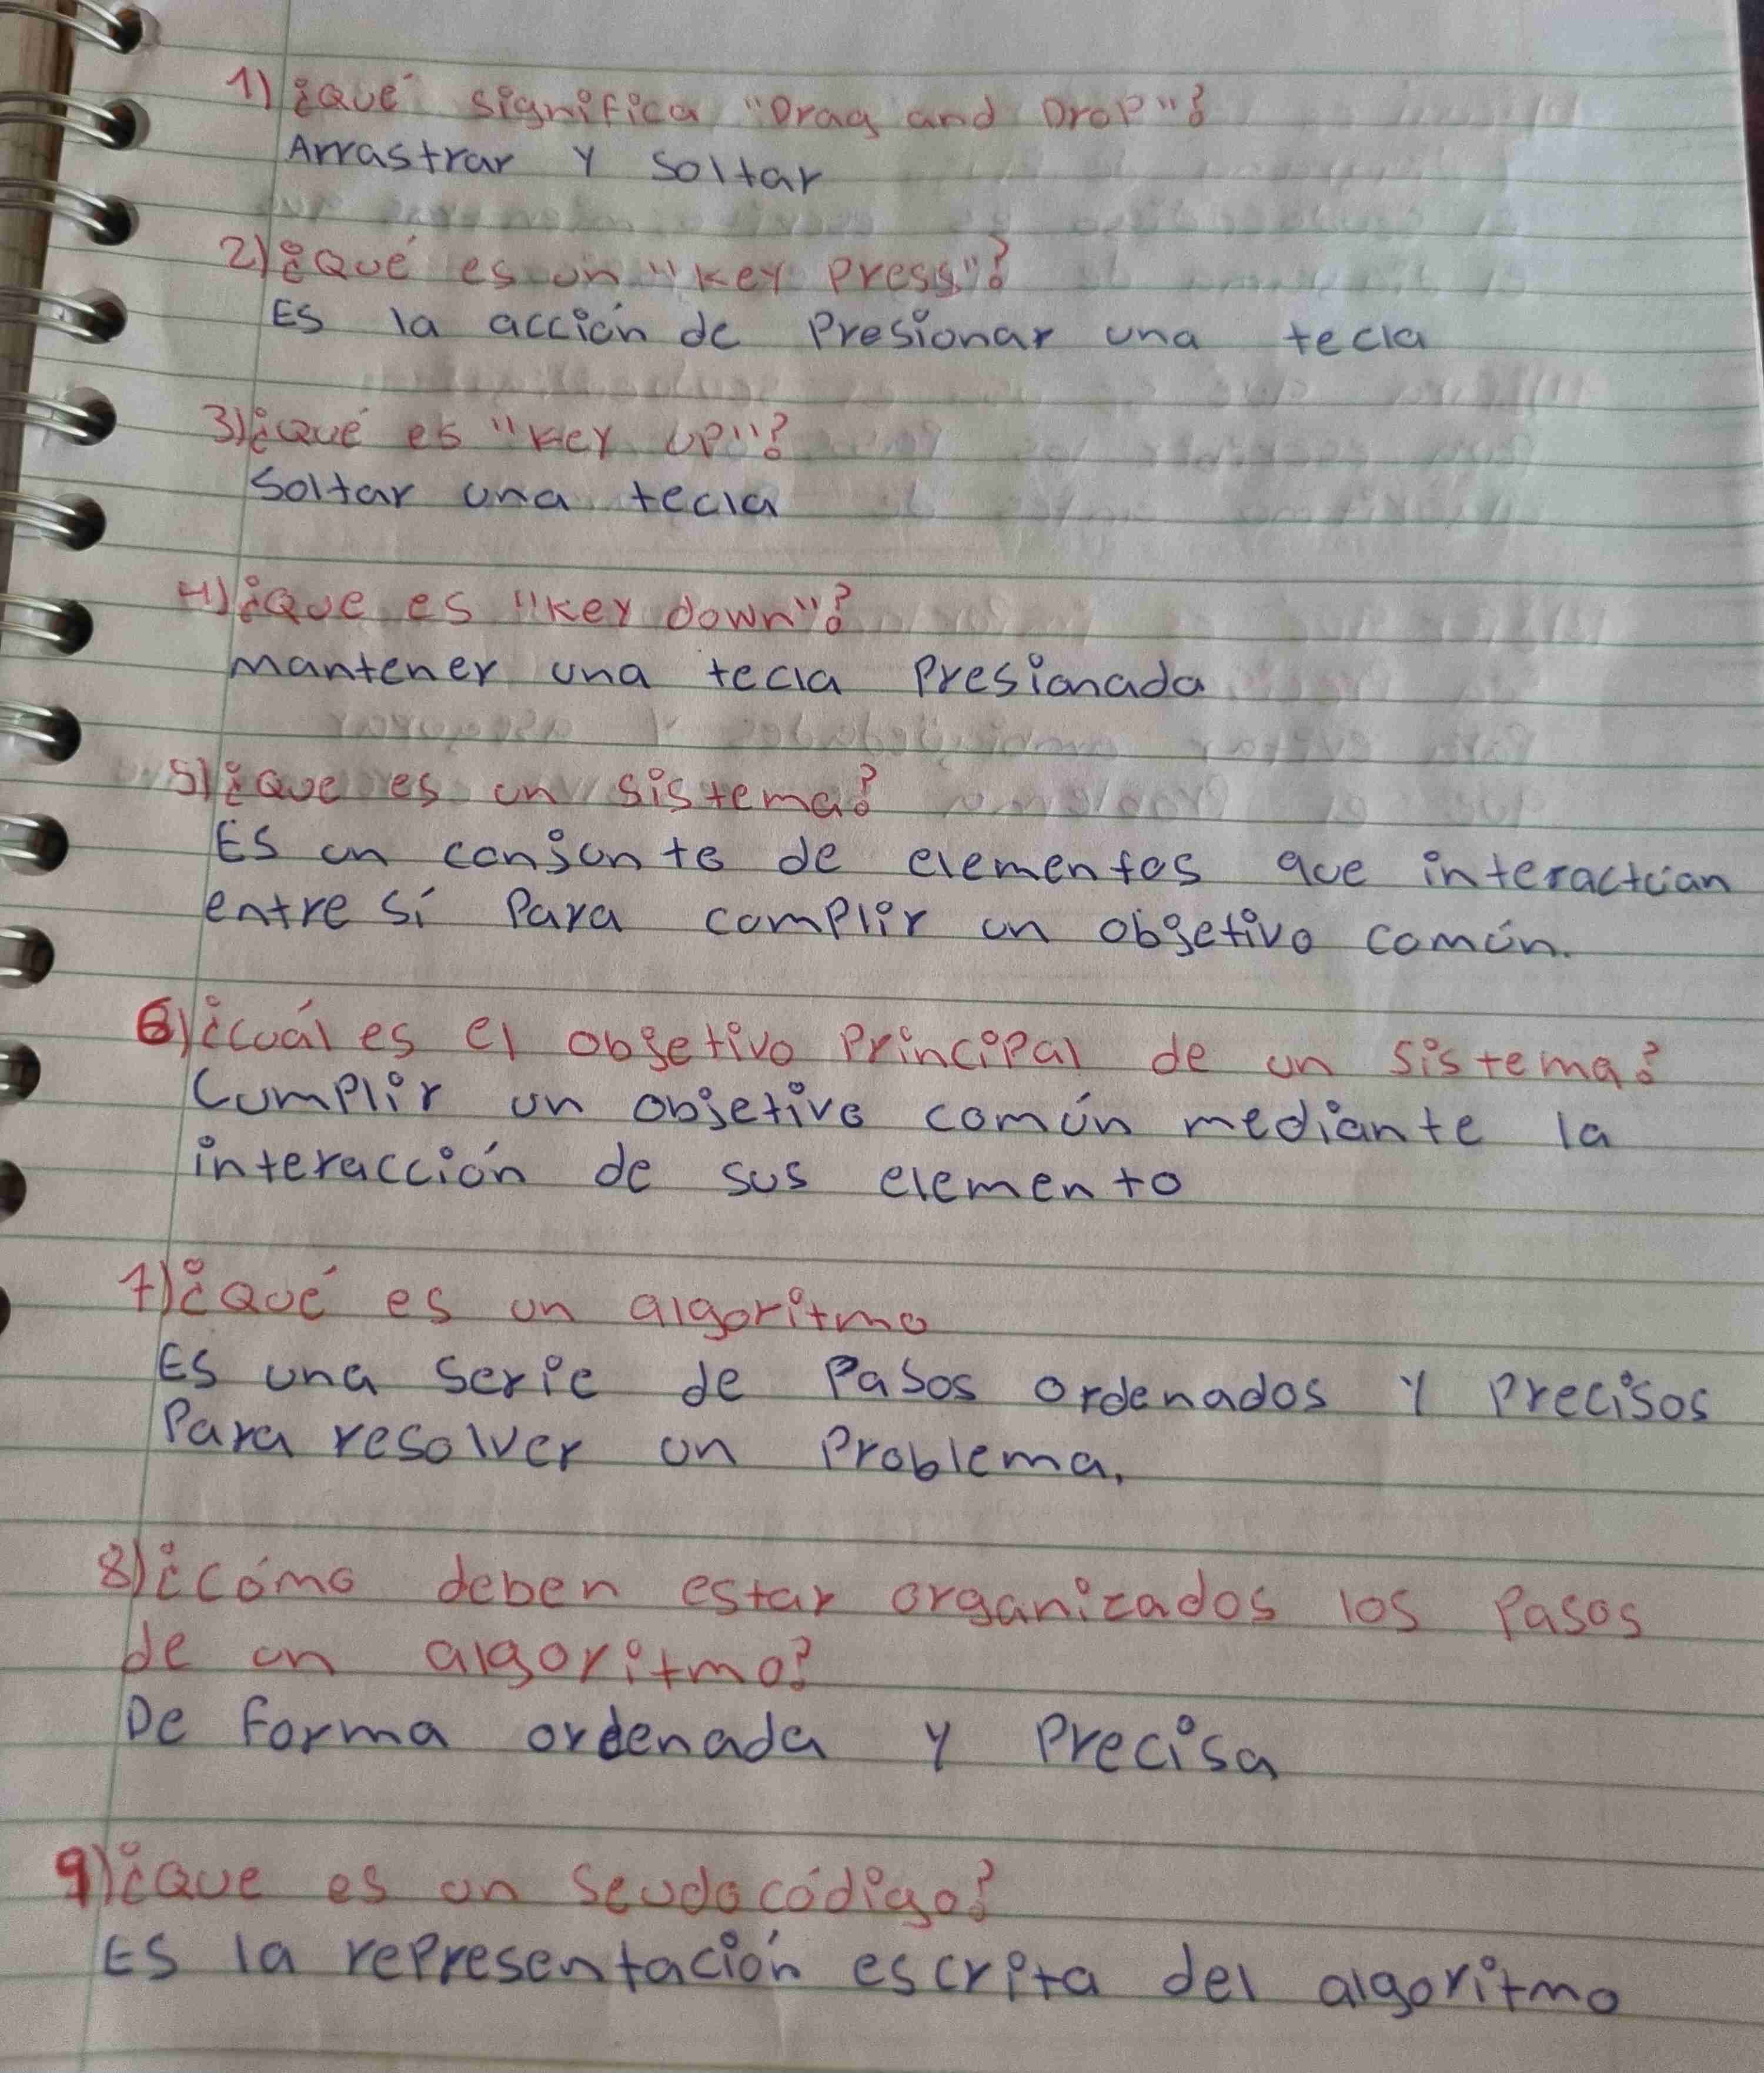 1) ¿Qué significa "Drag and Drop"?
Arrastrar y soltar
2) ¿Qué es un "Key Press"?
Es la acción de Presionar una tecla
3) ¿Qué es "Key UP"?
Soltar una tecla
4) ¿Que es "Key down"?
mantener una tecla Presionada
5) ¿Que es un sistema?
Es un conjunto de elementos que interactúan
entre sí Para complir un objetivo común.
6) ¿Cuál es el objetivo Principal de un sistema?
Cumplir un objetivo común mediante la
interacción de sus elemento
7) ¿Qué es un algoritmo
Es una serie de Pasos ordenados y Precisos
Para resolver un Problema.
8) ¿Cómo deben estar organizados los Pasos
de un algoritmo?
De Forma ordenada y Precisa
9) ¿Que es un Seudocódigo?
Es la representación escrita del algoritmo